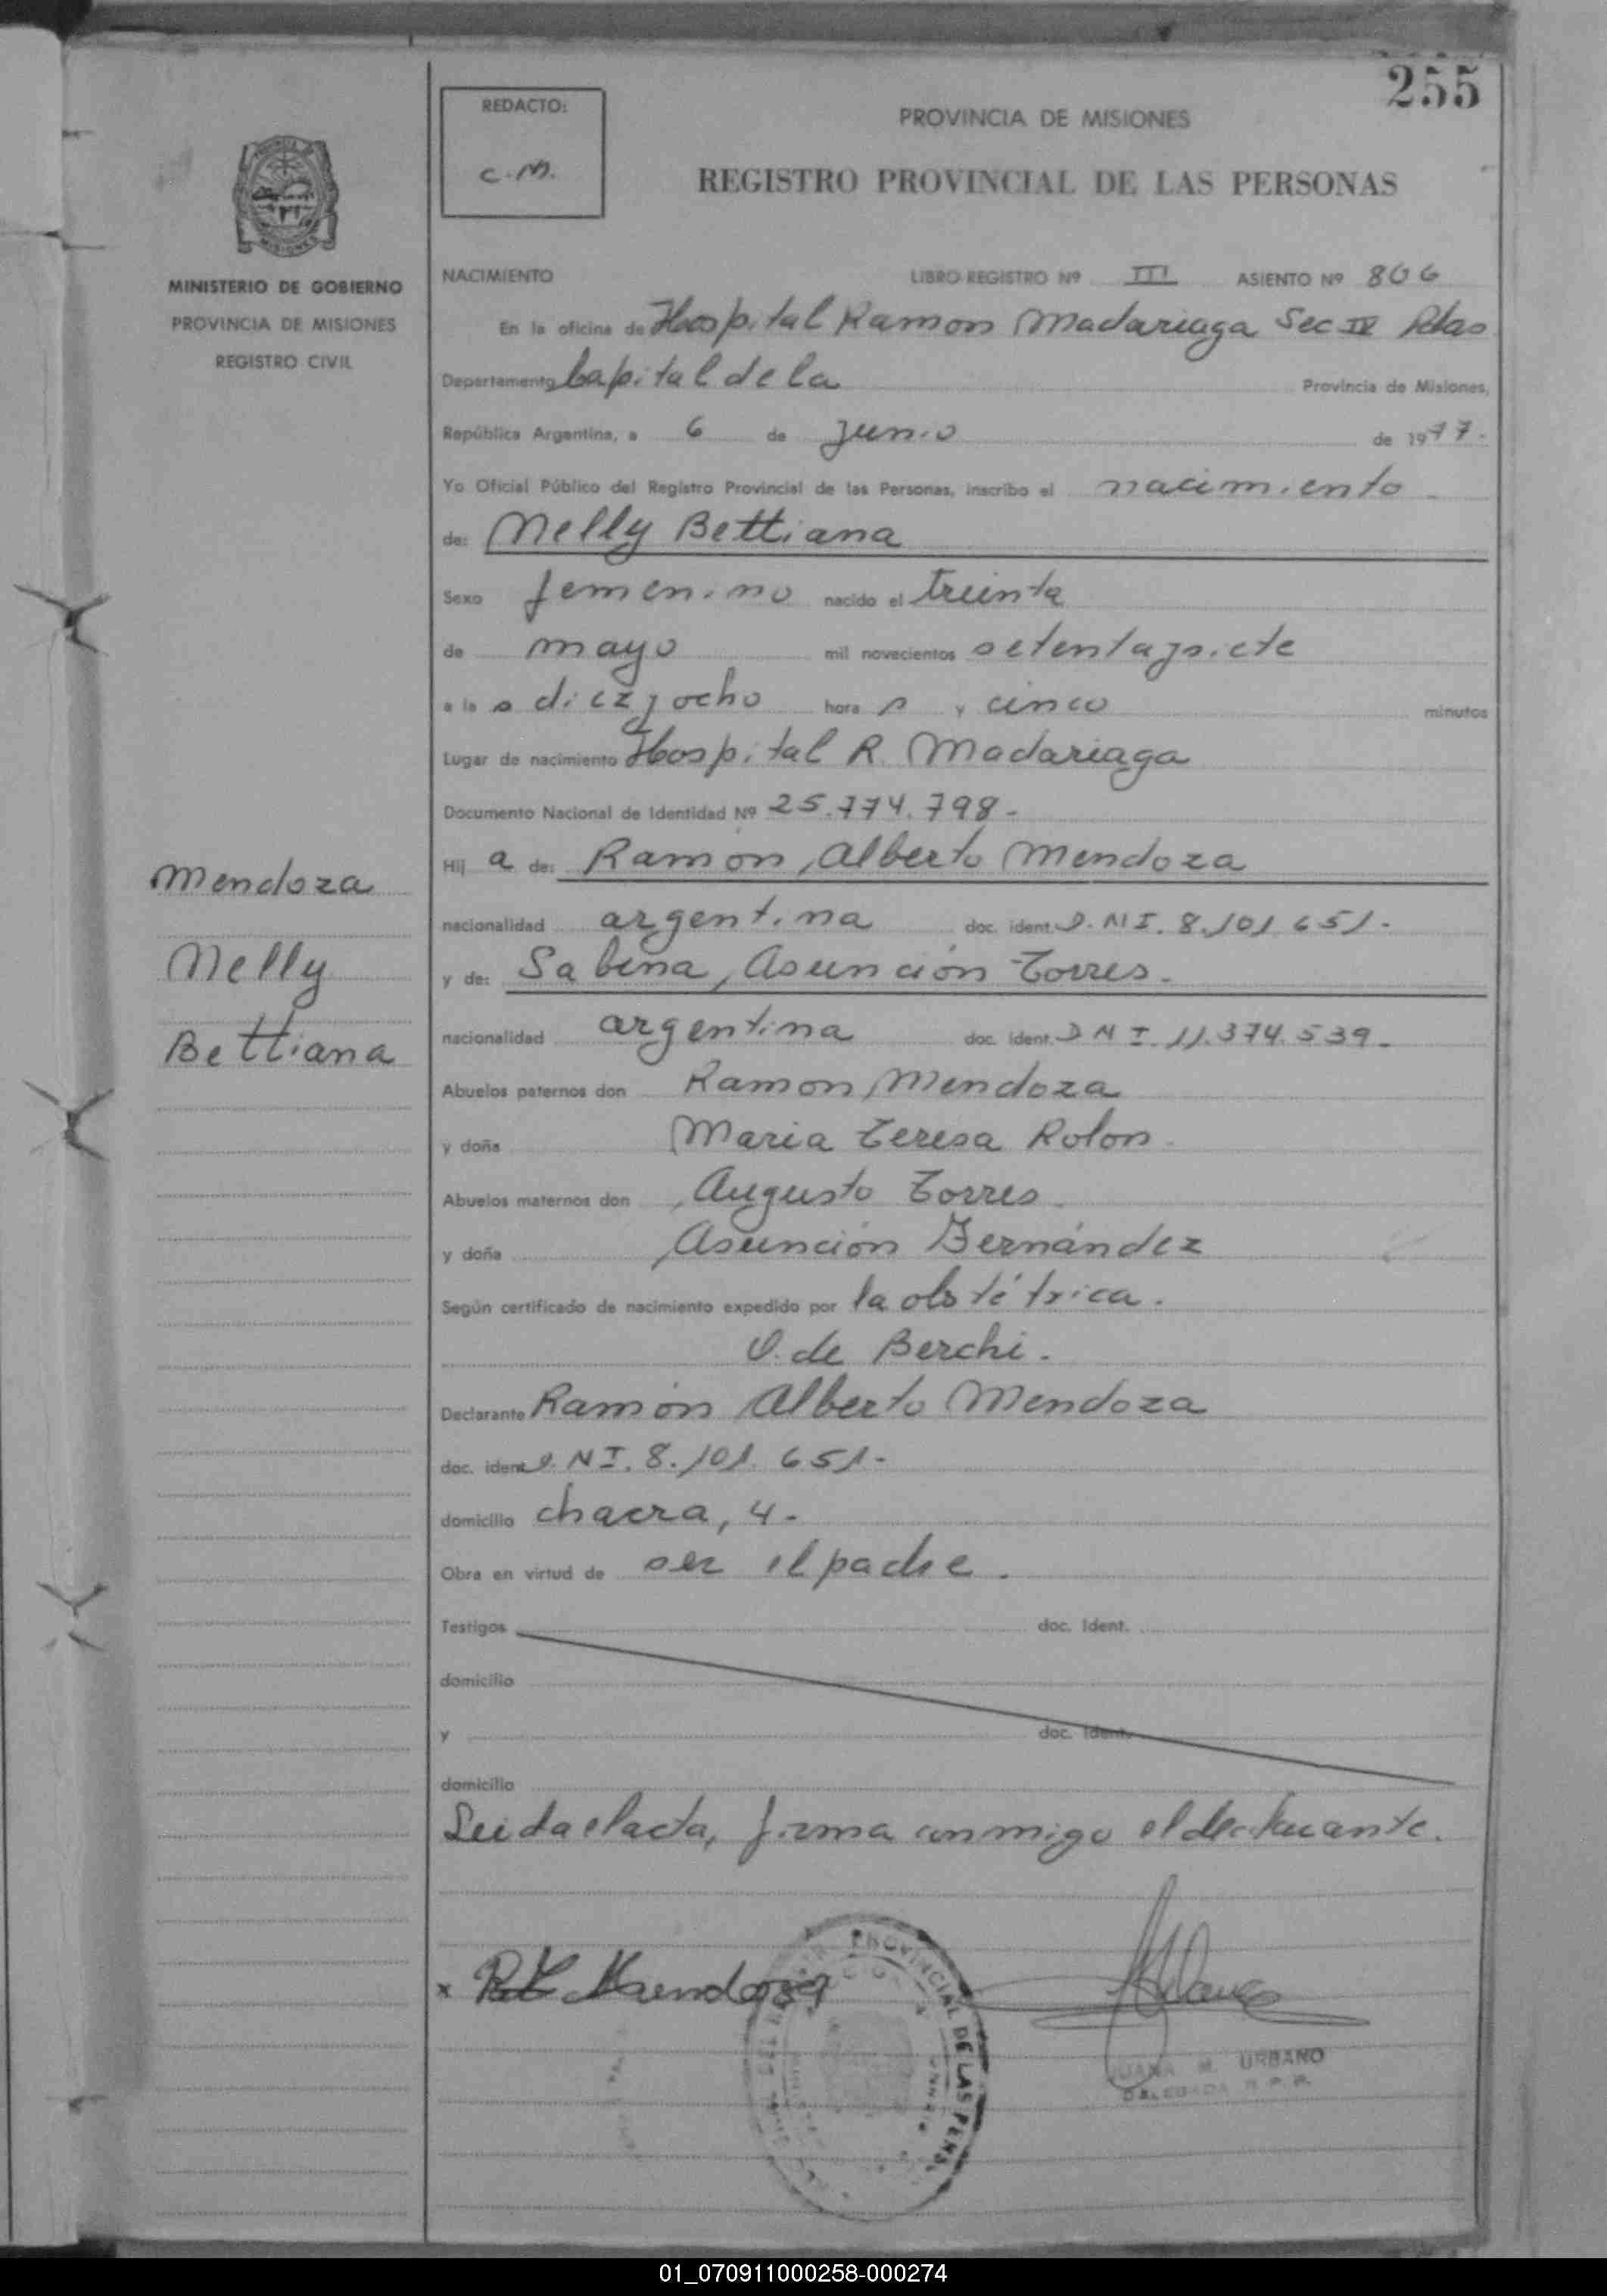 255
REDACTO:
C.M.
PROVINCIA DE MISIONES
REGISTRO PROVINCIAL DE LAS PERSONAS
MINISTERIO DE GOBIERNO
PROVINCIA DE MISIONES
REGISTRO CIVIL
NACIMIENTO LIBRO REGISTRO Nº III ASIENTO Nº 806
En la oficina de Hospital Ramon Madariaga Sec IV Pdas
Departamento Capital de la Provincia de Misiones,
República Argentina, a 6 de Junio de 1977.
Yo Oficial Público del Registro Provincial de las Personas, inscribo el nacimiento
de: Nelly Bettiana
Sexo femenino nacido el treinta
de mayo mil novecientos setenta y siete
a la s diez y ocho hora s y cinco minutos
Lugar de nacimiento Hospital R. Madariaga
Documento Nacional de Identidad Nº 25.774.798-
Hij a de: Ramón Alberto Mendoza
nacionalidad argentina doc. ident. D.NI. 8.101.651.-
y de: Sabina, Asunción Torres.
nacionalidad argentina doc. ident. D N I. 11.374.539.-
Abuelos paternos don Ramon Mendoza
y doña Maria Teresa Rolon
Abuelos maternos don Augusto Torres
y doña Asunción Fernández
Según certificado de nacimiento expedido por la obstétrica.
O. de Berchi.
Declarante Ramón Alberto Mendoza
doc. ident D. NI. 8.101.651-
domicilio chacra, 4-
Obra en virtud de ser el padre.
Testigos doc. Ident.
domicilio
y doc. Ident.
domicilio
Leida el acta, firma conmigo el declarante.
Mendoza
Nelly
Bettiana
x Mendoza
PROVINCIAL DE LAS PERS.
JUANA M. URBANO
DELEGADA R.P.P.
01_070911000258-000274